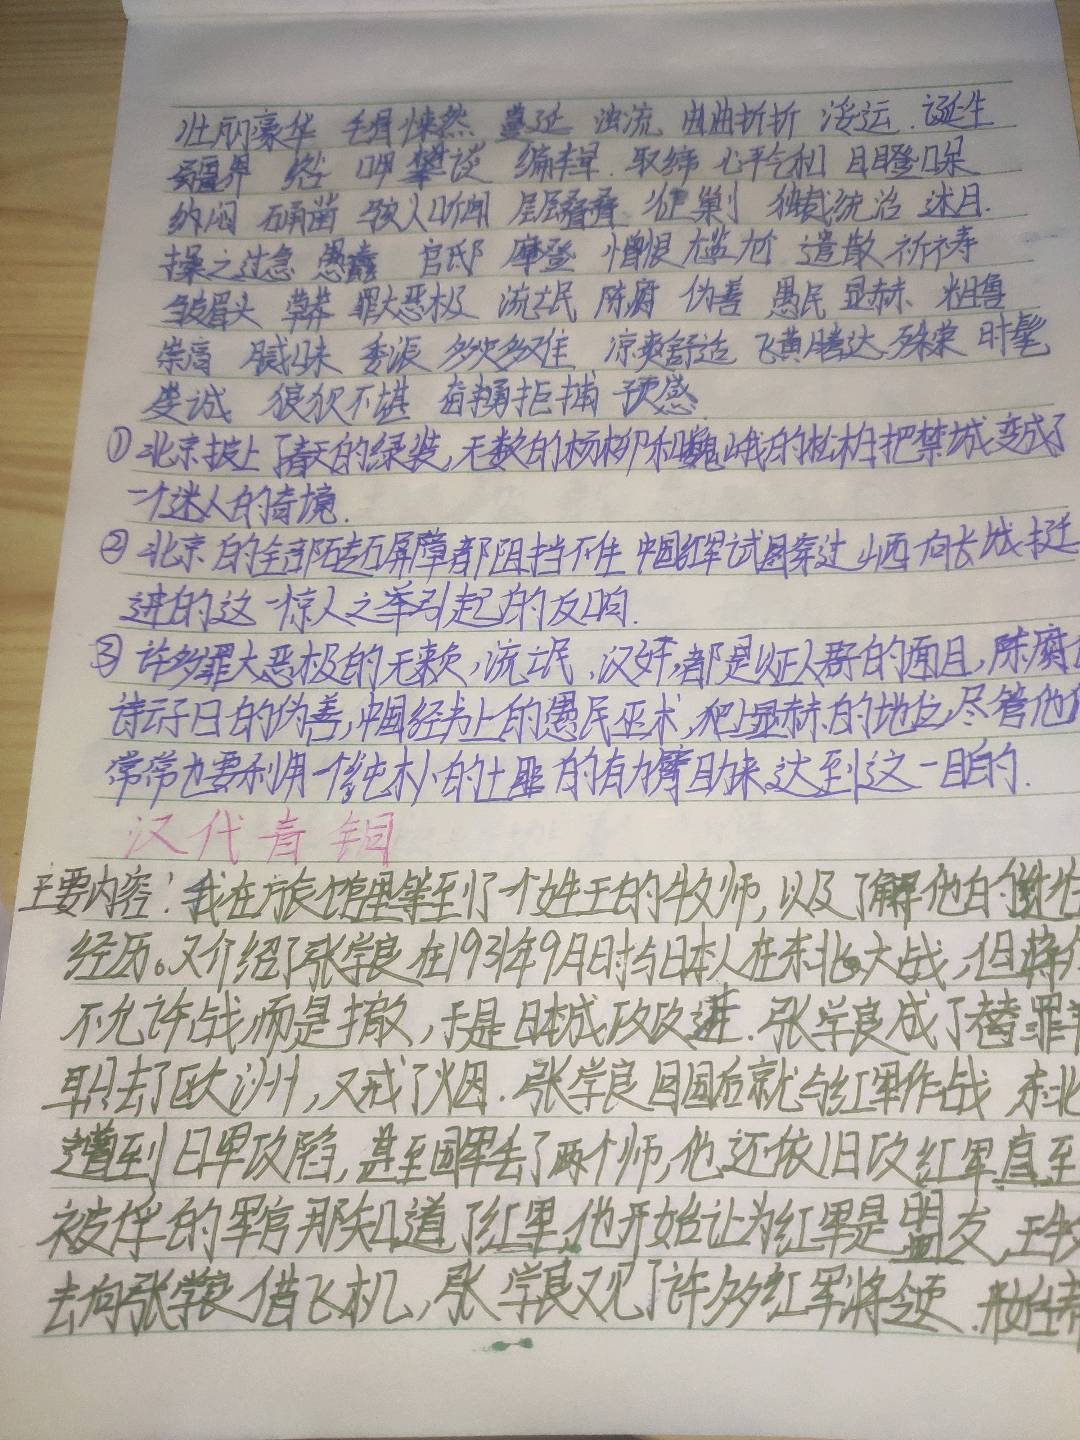 壮丽豪华 毛骨悚然 蔓延 浊流 曲曲折折 诞生
疆界 攀谈 编辑 取缔 心平气和 目瞪口呆
纳闷 确凿 骇人听闻 层层叠叠 独裁统治 迷月
操之过急 愚蠢 官邸 摩登 憎恨 尴尬 遣散 祈祷
皱眉头 草莽 罪大恶极 流氓 陈腐 伪善 愚民 显赫 粗鲁
崇高 腻味 委派 多灾多难 凉爽舒适 飞黄腾达 殊荣 时髦
虔诚 狼狈不堪 奋勇 拒捕 预感
①北京披上了春天的绿装,无数的杨柳和巍峨的松柏把禁城变成了
一个迷人的奇境.
②北京的全部砖石屏障都阻挡不住中国红军试图穿过山西向长城挺
进的这一惊人之举引起的反响.
③许多罪大恶极的无赖,流氓,汉奸,都是以正人君子的面目,陈腐
诗云子曰的伪善,中国经书上的愚民巫术,爬上显赫的地位,尽管他们
常常也要利用一个纯朴的土匪的有力臂助来达到这一目的.
汉代青铜
主要内容:我在旅馆里等到了一个姓王的牧师,以及了解他的
经历。又介绍了张学良在1931年9月日时与日本人在东北大战,但蒋
不允许战而是撤,于是日本成攻攻进.张学良成了替罪羊
职去了欧洲,又戒了烟.张学良回国后就与红军作战 东北
遭到日军攻陷,甚至国军丢了两个师,他还依旧攻红军直至
被俘的军官那知道了红军,他开始让为红军是盟友,王牧
去向张学良借飞机,张学良又见了许多红军将领.